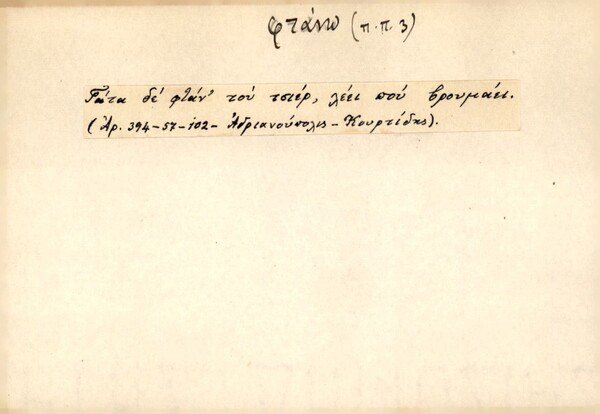 φτάνω (π.π. 3)
Γάτα δέ φτάν' τού τσιέρ, λέει πού βρουμάει.
(Ἀρ. 394-57-102- Ἀδριανούπολις - Κουρτίδης).